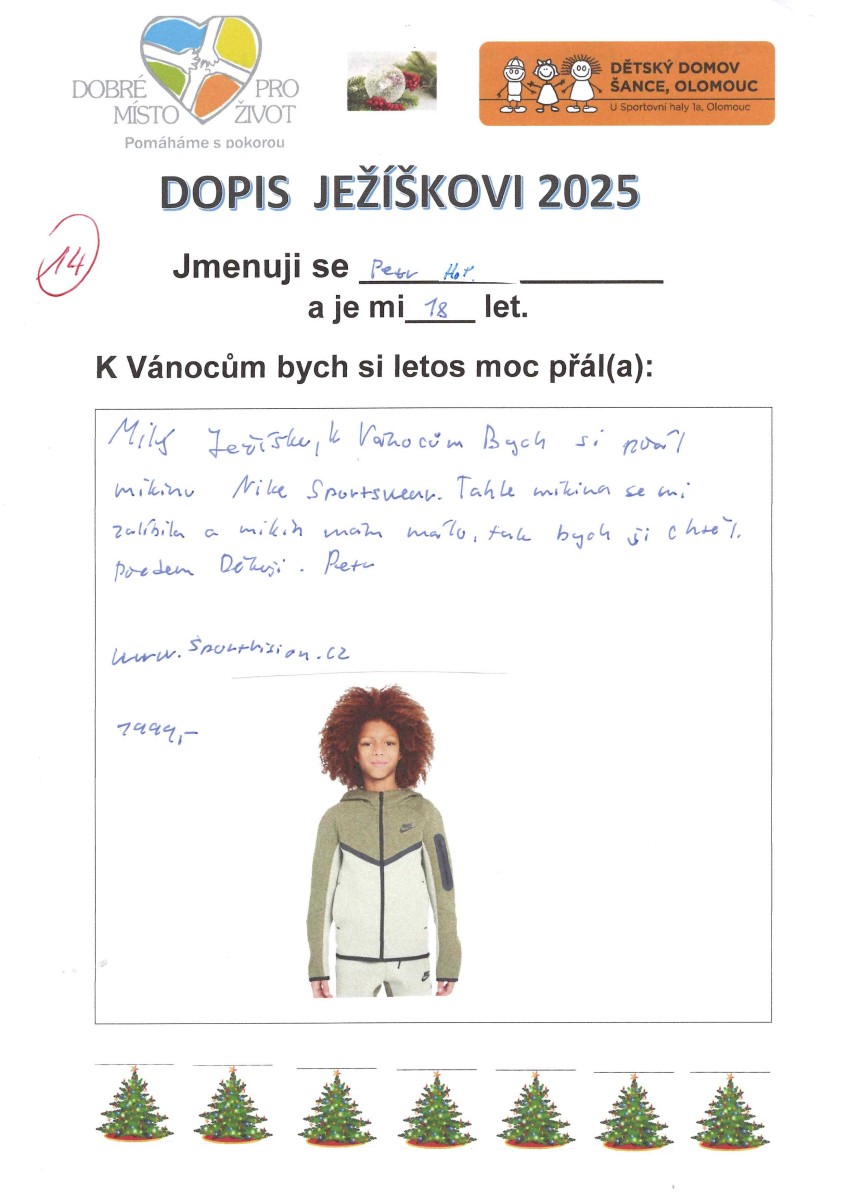 DOBRÉ PRO
MÍSTO ŽIVOT
Pomáháme s pokorou
DĚTSKÝ DOMOV
ŠANCE, OLOMOUC
U Sportovní haly 1a, Olomouc
DOPIS JEŽÍŠKOVI 2025
14
Jmenuji se Petr Hor.
a je mi 18 let.
K Vánocům bych si letos moc přál(a):
Milý Ježíšku, k Vánocům Bych si přál
mikinu Nike Sportswear. Tahle mikina se mi
zalíbila a mikin mám málo, tak bych ji chtěl.
předem Děkuji. Petr
www.Sportvision.cz
1999,-